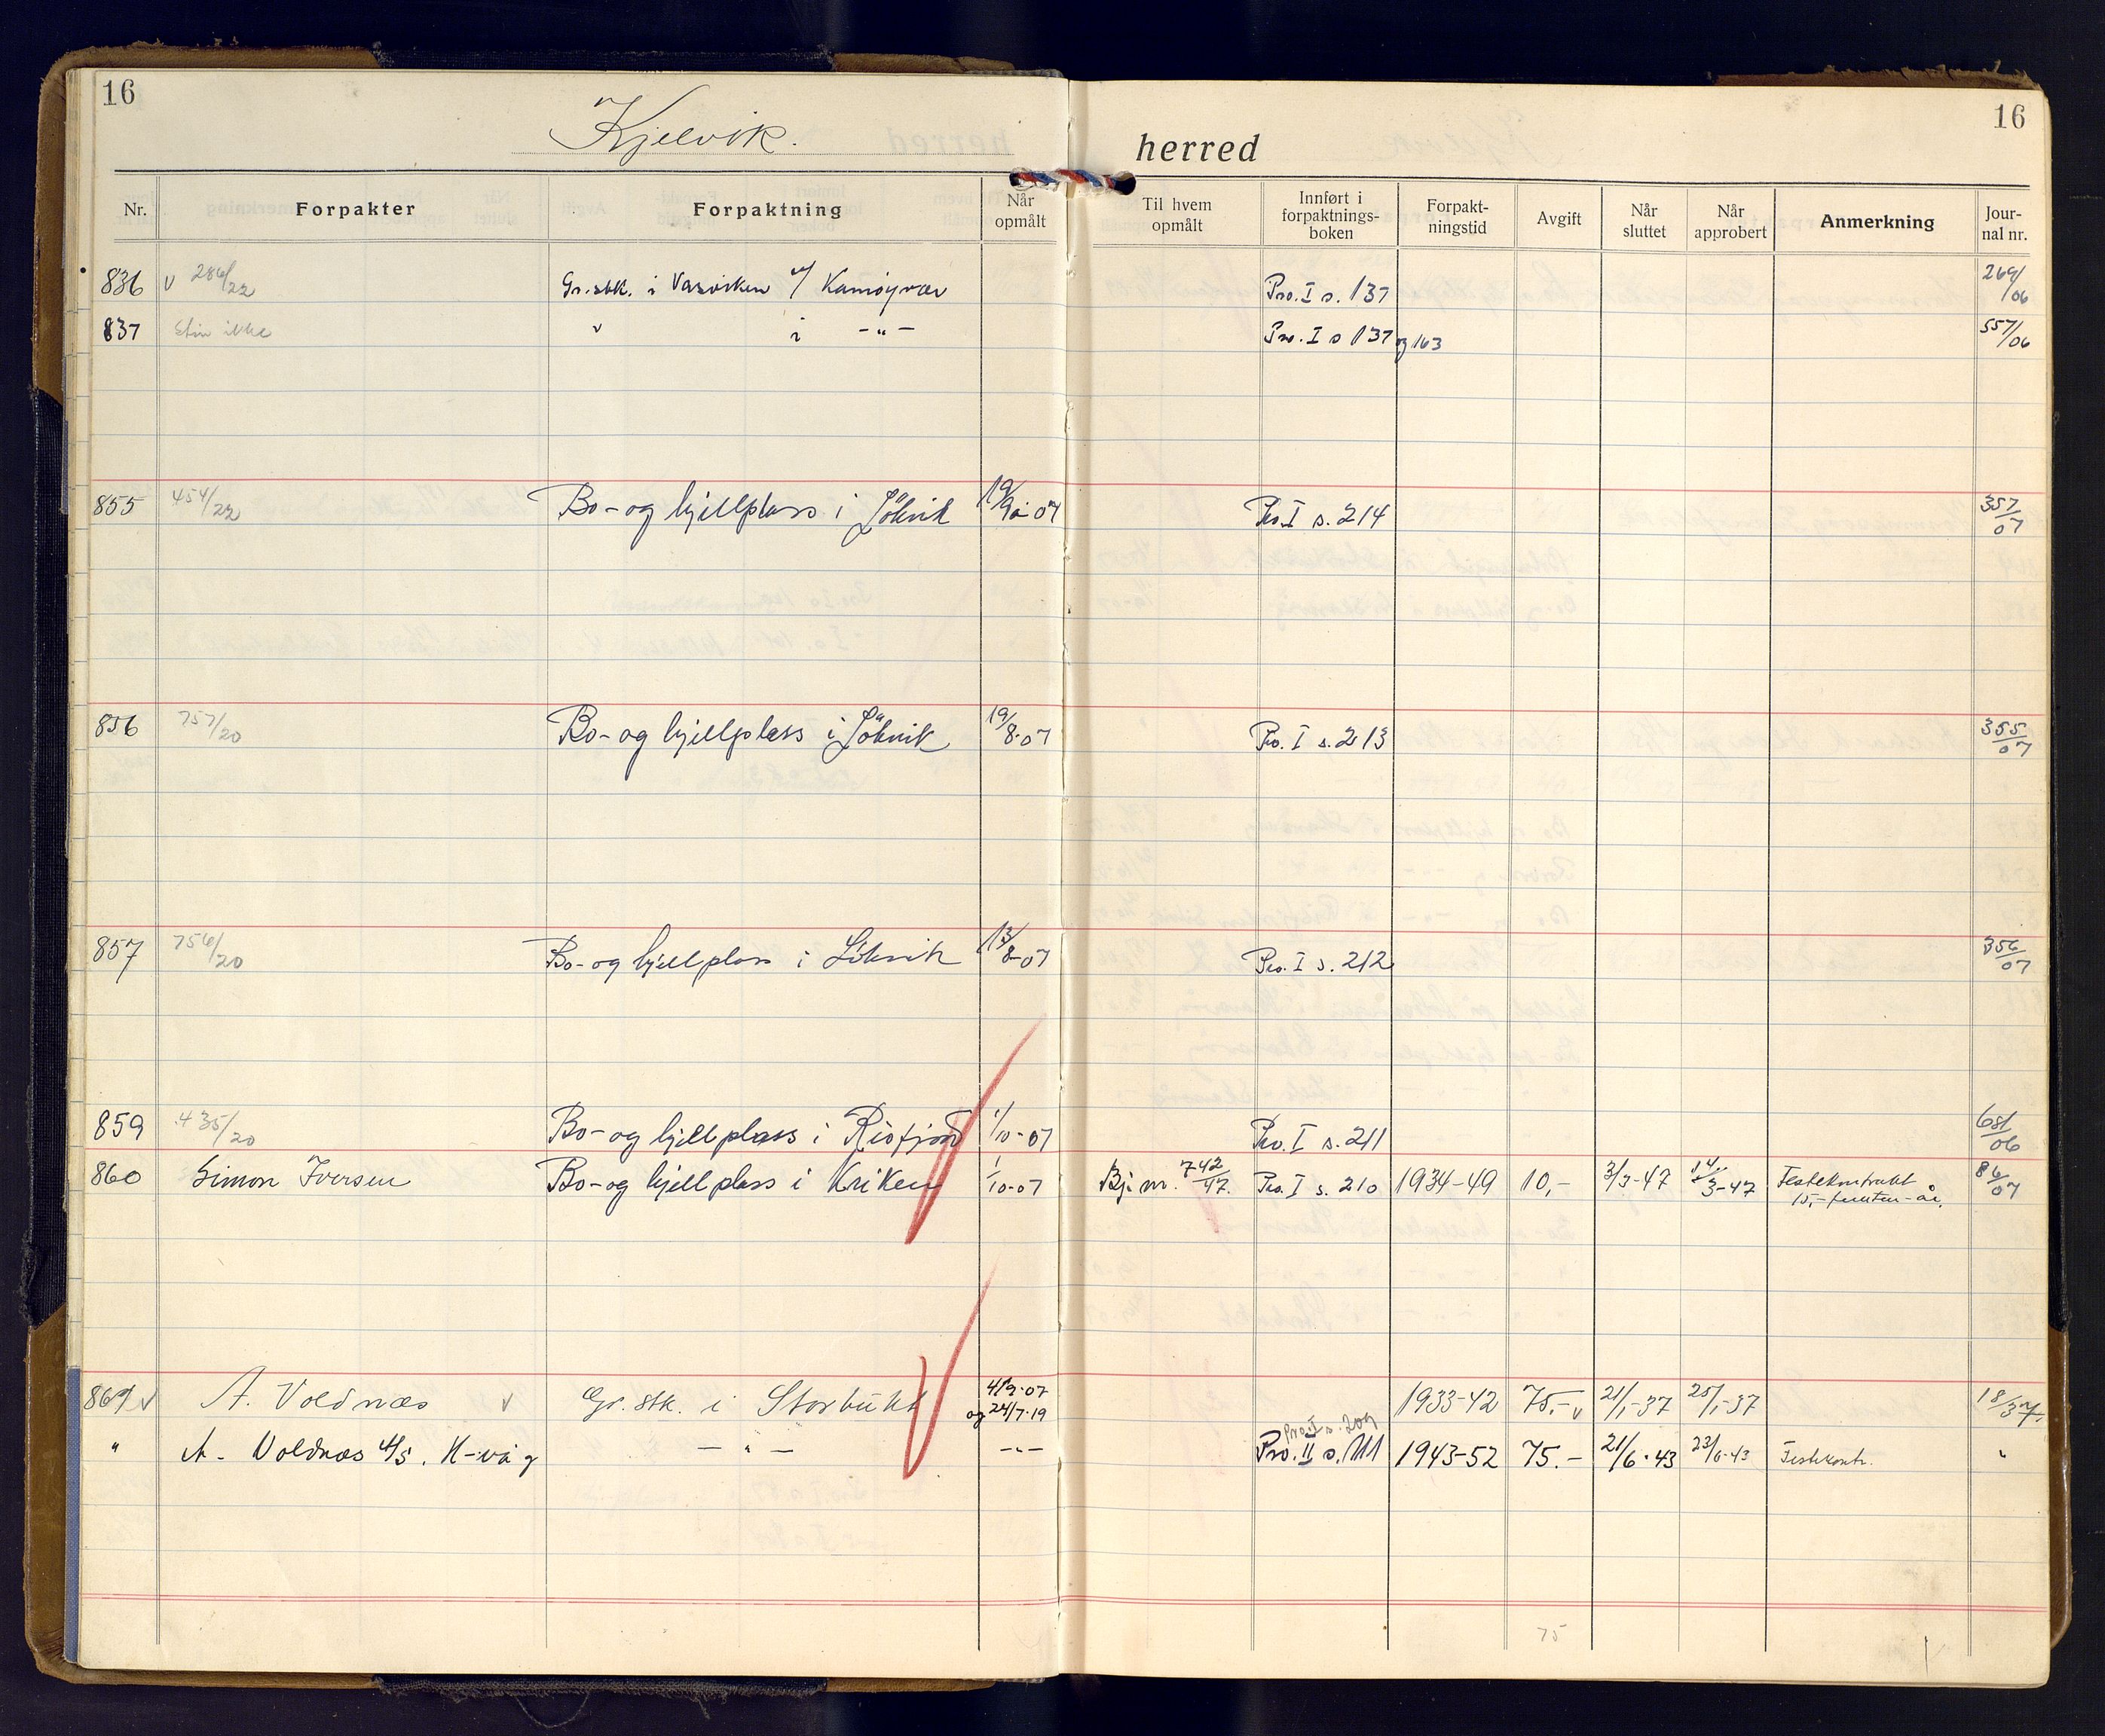 16
16
Kjelvik.
herred
Nr.
Forpakter
Forpaktning
Når opmålt
Til hvem opmålt
Innført i forpaktnings-boken
Forpakt-ningstid
Avgift
Når sluttet
Når approbert
Anmerkning
Jour-nal nr.
836 v 286/22 Gr.stk. i Vasviken v/ Kamøyvær Pro. I s. 137 269/06
837 ikke " i -"- Pro. I s 137 og 163 557/06
855 454/22 Bo- og hjellplass i 07 Pro. I s. 214 357/07
856 757/20 Bo- og hjellplass i 19/8-07 Pro. I s. 213 355/07
857 756/20 Bo- og hjellplass i 13/8-07 Pro. I s. 212 356/07
859 435/20 Bo- og hjellplass i Risfjord 1/10-07 Pro. I s. 211 681/06
860 Simon Iversen Bo- og hjellplass i Kriken 1/10-07 742/47. Pro. I s. 210 1934-49 10,- 3/3-47 14/3-47 Festekontrakt 86/07
15,- femten - år.
861 v A. Voldnæs v Gr. stk. i Storbukt 4/9-07 1933-42 75.- v 21/1-37 25/1-37 18/37.
og 24/7-19
Pro. I s. 209
" A. Voldnæs A/S. H-våg - " - -"- Pro. II s. 111 1943-52 75.- 21/6-43 23/6-43 Festekontr. "
75